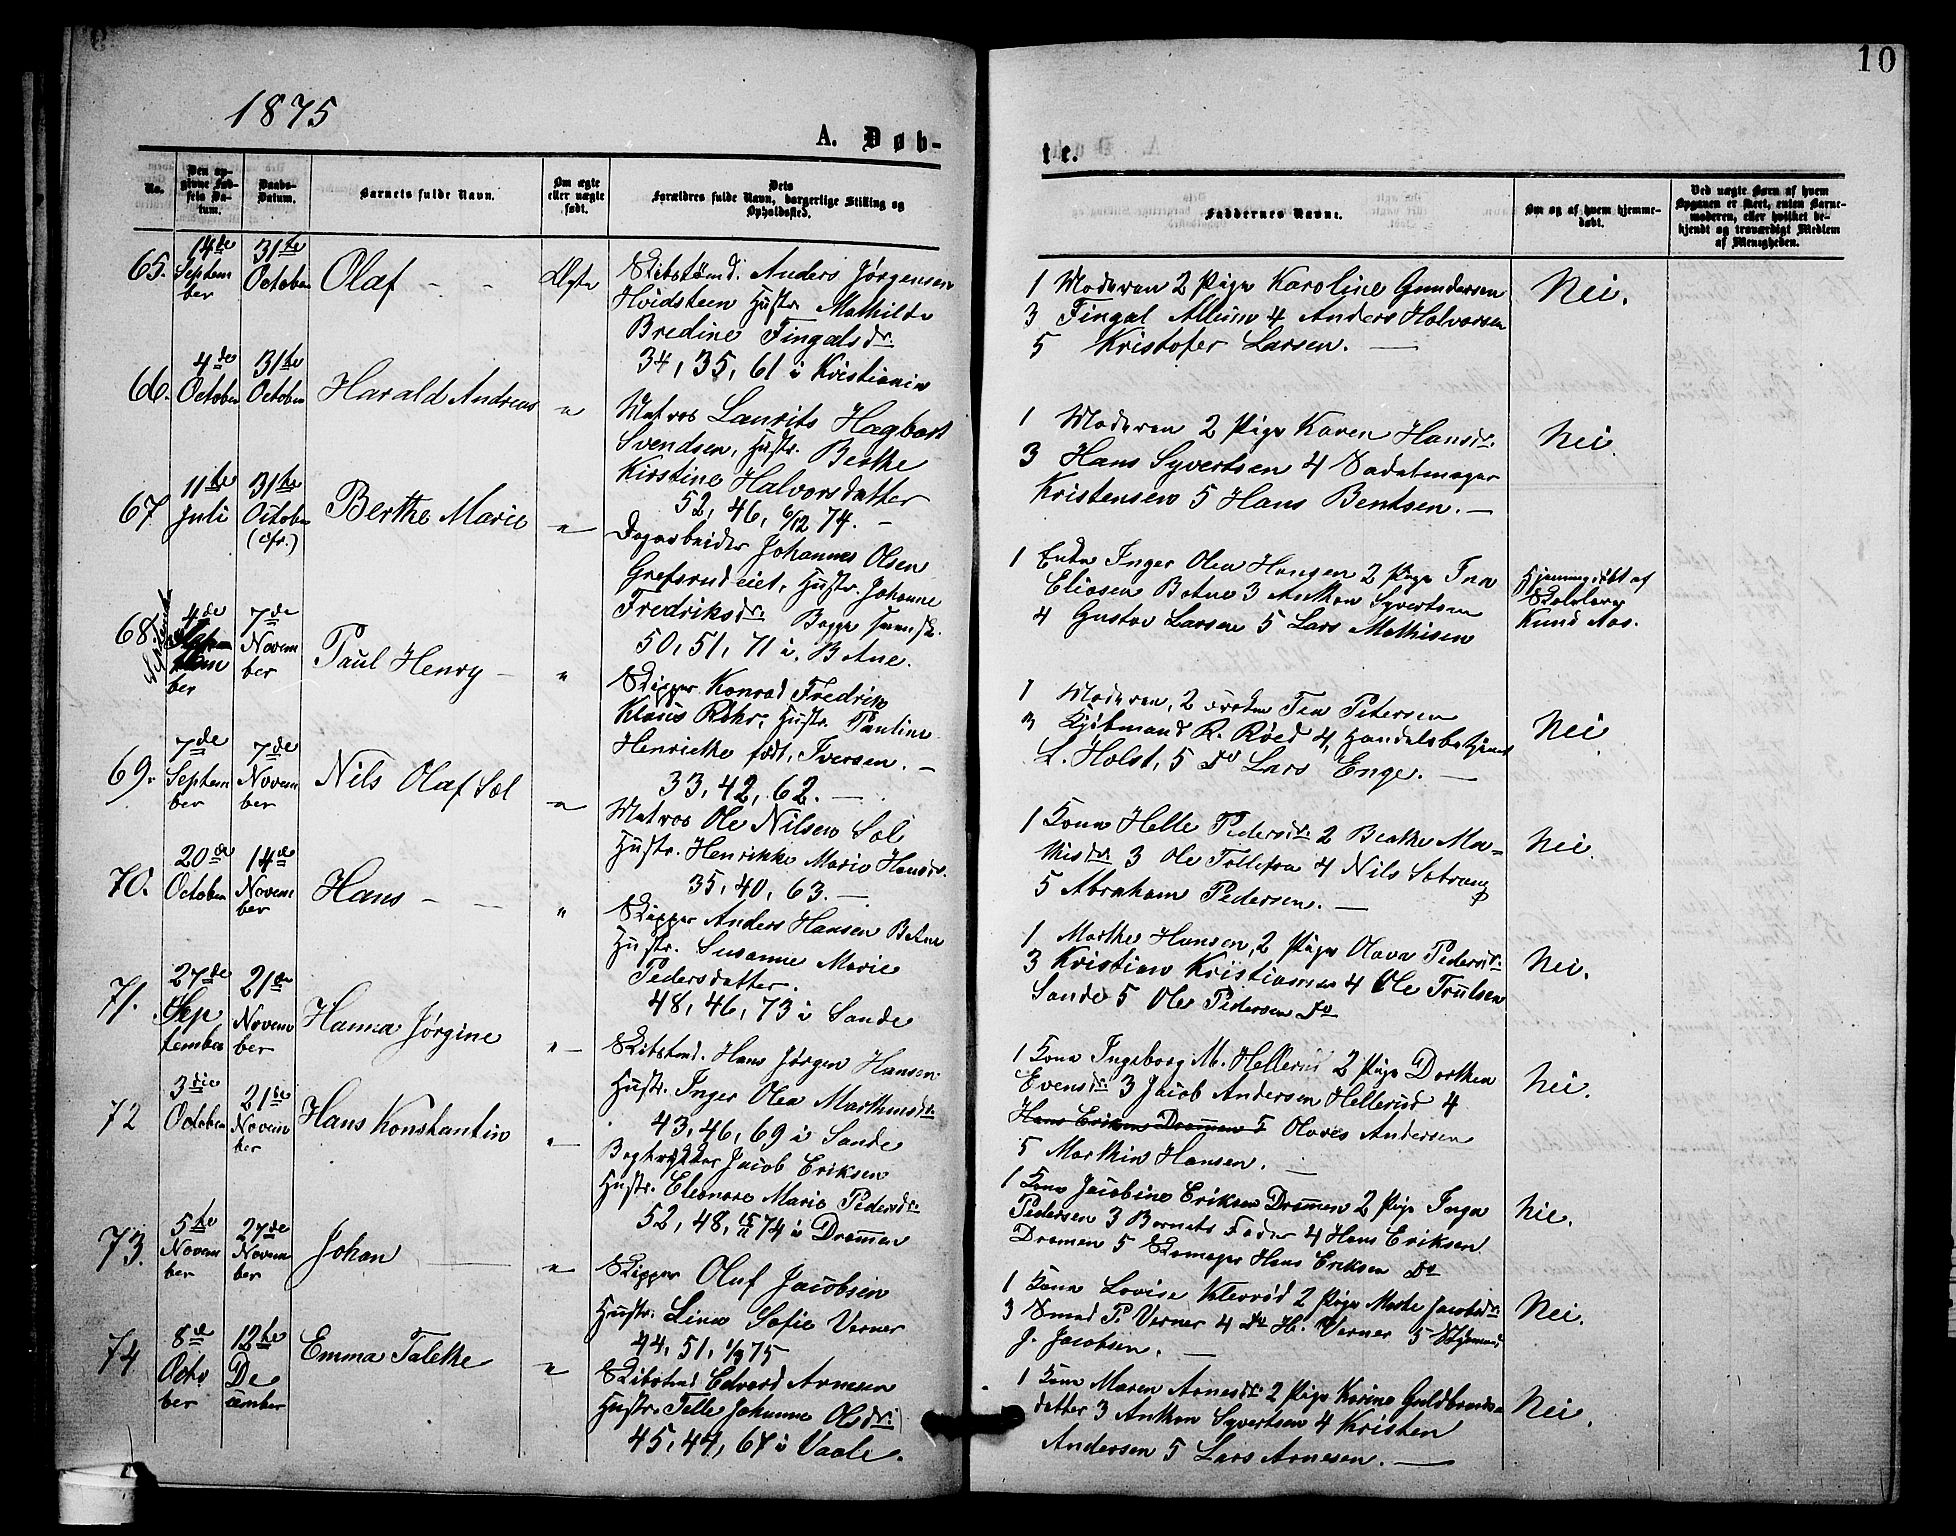 1875
10
A. Døb-
te.
No.
Den op-
givne Fød-
sels Da-
tum.
Daabs-
Datum.
Barnets fulde Navn.
Om ægte
eller uægte
født.
Dets
Forældres fulde Navn, borgerlige Stilling og
Opholdssted.
Faddernes Navne.
Om og af hvem hjemme-
døbt.
Ved uægte Børn af hvem
Opgaven er skeet, enten Barne-
moderen, eller hvilket be-
kjendt og troværdigt Medlem
af Menigheden.
65. 14de September
31te October
Olaf
Ægte
Skibstømd. Anders Jørgensen
Hvidsteen Hustr. Mathilde
Bredine Tingalsdr.
34, 35, 61 i Kristiania
1 Moderen 2 Pige Karoline Gundersen
3 Fingal Allum 4 Anders Halvorsen
5 Kristofer Larsen.
Nei.
66. 4de October
31te October
Harald Andreas
"
Matros Laurits Hagbart
Svendsen, Hustr. Berthe
Kirstine Halvorsdatter
52, 46, 6/12 74.
1 Moderen 2 Pige Karen Hansdr.
3 Hans Syvertsen 4 Sadelmager
Kristensen 5 Hans Bentsen.
Nei.
67 11te Juli
31te October
(cfr.)
Berthe Marie
"
Dagarbeider Johannes Olsen
Grefsrudeiet, Hustr. Johanne
Fredriksdr. Begge svenske.
50, 51, 71 i Botne.
1 Enke Inger Olea Haugen 2 Pige Ina
Eliasen Botne 3 Anthon Syvertsen
4 Gustav Larsen 5 Lars Mathisen
Hjemmedøbt af
Skolelærer
Knud Aas.
68. 4de September
7de November
Paul Henry
"
Skipper Konrad Fredrik
Klaus Röhr, Hustr. Pauline
Henrikke født Iversen.
33, 42, 62.
1 Moderen, 2 Frøken Tea Petersen
3 Kjøbmand R. Röed 4, Handelsbetjent
L. Holst, 5 Do Lars Enge.
Nei
69. 7de September
7de November
Nils Olaf Søl
"
Matros Ole Nilsen Søl
Hustr. Henrikke Marie Hansdr.
35, 40, 63.
1 Kone Helle Pedersdr. 2 Beathe Ma-
thisdr. 3 Ole Tollefsen 4 Nils
5 Abraham Pedersen.
Nei.
70. 20de October
14de November
Hans
"
Skipper Anders Hansen Botne
Hustr. Susanne Marie
Pedersdatter.
48, 46, 73 i Sande
1 Marthe Hansen, 2 Pige Olava Pedersdr.
3 Kristian Kristiansen 4 Ole Trulsen
Sande 5 Ole Pedersen Do
Nei.
71. 27de September
21de November
Hanna Jørgine
"
Skibstmd. Hans Jørgen Hansen
Hustr. Inger Olea Marthinsdr.
43, 46, 69 i Sande
1 Kone Ingeborg M. Hellerud 2 Pige Dorthea
Evensdr. 3 Jacob Andersen Hellerud 4
Hans Eriksen Drammen 5 Olaves Andersen
5 Marthin Hansen.
Nei.
72 3die October
21de November
Hans Konstantin
"
Bogtrykker Jacob Eriksen
Hustr. Eleonore Marie Pedersdr.
52, 48, 15/11 74 i Drammen
1 Kone Jacobine Eriksen Drammen 2 Pige Inga
Pedersen 3 Barnets Fader 4 Hans Eriksen
Dramen 5 Skomager Hans Eriksen Do
Nei.
73. 5te November
27de November
Johan
"
Skipper Oluf Jacobsen
Hustr. Lina Sofie Verner
44, 51, 1/3 75
1 Kone Lovise Klevrød 2 Pige Marte Jacobsdr.
3 Smed P. Verner 4 Do H. Verner 5 Styrmand
J. Jacobsen.
Nei.
74 8de October
12te December
Emma Talethe
"
Skibstmd Edvard Arnesen
Hustr. Telle Johanne Olsdr.
45, 47, 67 i Vaale.
1 Kone Maren Arnesdr. 2 Pige Karine Guldbrands-
datter 3 Anthon Syvertsen 4 Kristen
Andersen 5 Lars Arnesen.
Nei.